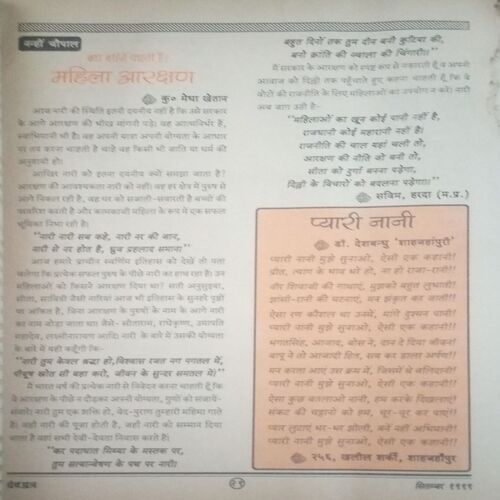 नन्हों चौपाल
क्या बहिनें चाहती हैं?
महिला आरक्षण
कु० मेघा खेतान
आज नारी की स्थिति इतनी दयनीय नहीं है कि उसे सरकार
के आगे आरक्षण की भीख मांगनी पड़े। वह आत्मनिर्भर है,
स्वाभिमानी भी है। वह अपनी यात्रा अपनी योग्यता के आधार
पर तय करना चाहती है चाहे वह किसी भी जाति या धर्म की
अनुयायी हो।
आखिर नारी को इतना दयनीय क्यों समझा जाता है?
आरक्षण की आवश्यकता नारी को नहीं। वह हर क्षेत्र में पुरुष से
आगे निकल रही है, वह घर को सजाती-सवारती है बच्चे की
परवरिश करती है और कामकाजी महिला के रूप में एक सफल
भूमिका निभा रही है।
"नारी नारी सब कहे, नारी नर की खान,
नारी से नर होत है, ध्रुव प्रहलाद समाना"
आज हमारे प्राचीन स्वर्णिम इतिहास को देखें तो पता
चलेगा कि प्रत्येक सफल पुरुष के पीछे नारी का हाथ रहा है। उन
महिलाओं को किसने आरक्षण दिया था? सती अनुसुइया,
सीता, सावित्री जैसी नारियां आज भी इतिहास के सुनहरे पृष्ठों
पर अंकित है, जिना आरक्षण के पुरुषों के नाम के आगे नारी
का नाम जोड़ा जाता था। जैसे- सीताराम, राधेकृष्ण, उमापति
महादेव, लक्ष्मीनारायण आदि। नारी के बारे में उसकी योग्यता
के बारे में यही कहूँगी कि-
"नारी तुम केवल श्रद्धा हो, विश्वास रजत नग पगतल में,
पीयूष स्रोत सी बहा करो, जीवन के सुन्दर समतल में।"
मैं भारत वर्ष की प्रत्येक नारी से निवेदन करना चाहती हूँ कि
वे आरक्षण के पीछे न दौड़कर अपनी योग्यता, गुणों को सजायें-
संवारें। नारी तुम एक शक्ति हो, वेद-पुराण तुम्हारी महिमा गाते
हैं। जहाँ नारी की पूजा होती है, जहाँ नारी को सम्मान दिया
जाता है वहां सभी देवी-देवता निवास करते हैं।
"कर पदाघात मिथ्या के मस्तक पर,
तुम सत्यान्वेषण के पथ पर नारी।
बहुत दिनों तक तुम दीन बनी कुटिया की,
बनो क्रांति की ज्वाला की चिंगारी।"
मैं सरकार के आरक्षण को स्पष्ट रूप से नकारती हूँ व अपनी
आवाज को दिल्ली तक पहुँचाते हुए कहना चाहती हूँ कि वे
वोटों की राजनीति के लिए महिलाओं का उपयोग न करें। नारी
अब जाग उठी है-
"महिलाओं का खून कोई पानी नहीं है,
राजधानी कोई महारानी नहीं है।
राजनीति की चाल यहां चली तो,
आरक्षण की नीति को बनी तो,
सीता को दुर्गा बनना पड़ेगा,
दिल्ली के विचारों को बदलना पड़ेगा।"
सचिव, हरदा (म.प्र.)
प्यारी नानी
डॉ. देशबन्धु 'शाहजहांपुरी'
प्यारी नानी मुझे सुनाओ, ऐसी एक कहानी!
प्रीत, त्याग के भाव भरे हो, ना हो राजा-रानी!!
वीर शिवाजी की गाथाएं, मुझको बहुत लुभाती!
झांसी-रानी की घटनाएं, मन झंकृत कर जाती!!
ऐसा रण कौशल था उनमें, मांगे दुश्मन पानी!
प्यारी नानी मुझे सुनाओ, ऐसी एक कहानी!!
भगतसिंह, आजाद, बोस ने, दान दे दिया जीवन!
बापू ने तो आजादी हित, सब कर डाला अर्पण!!
मन करता आऊं उस क्रम में, जिसमें थे बलिदानी!
प्यारी नानी मुझे सुनाओ, ऐसी एक कहानी!!
ऐसा कुछ बतलाओ नानी, हम करके दिखलाएं!
संकट की चट्टानों को हम, चूर-चूर कर पाएं!!
प्यार लुटाएं भर-भर झोली, बनें नहीं अभिमानी!
प्यारी नानी मुझे सुनाओ, ऐसी एक कहानी!!
२५६, खलील शर्की, शाहजहाँपुर
देवपुत्र
२९
सितम्बर १९९९